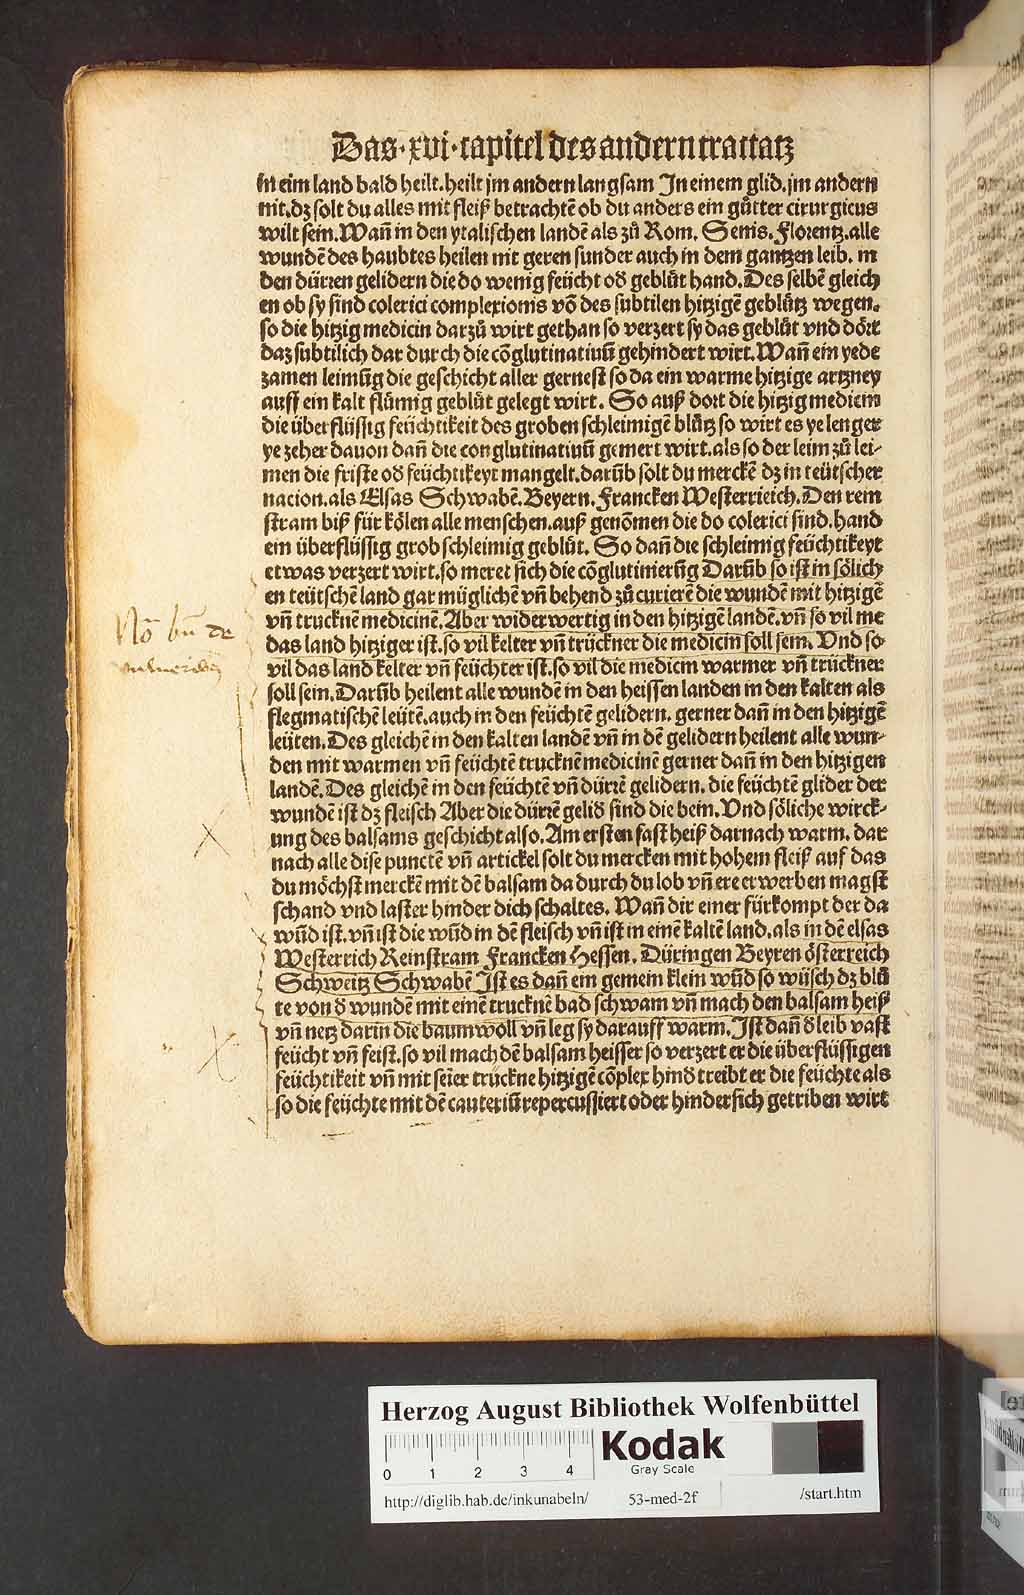 Das·xvi·capitel des andern tractatz
in eim land bald heilt.heilt jm andern langsam In einem glid.jm andern
nit.dz solt du alles mit fleiß betrachtē ob du anders ein gůtter cirurgicus
wilt sein.Wañ in den ytalischen landē als zů Rom. Senis. Florentz.alle
wundē des haubtes heilen nit geren sunder auch in dem gantzen leib. in
den dürren gelidern die do wenig feüchtoð geblůt hand.Des selbē gleich
en ob sy sind colerici complexionis vō des subtilen hitzigē geblůtz wegen.
so die hitzig medicin darzů wirt gethan so verzert sy das geblůt vnd dört
daz subtilich dar durch die cōglutinatiuū gehindert wirt.Wañ ein yede
zamen leimūg die geschicht aller gernest so da ein warme hitzige artzney
auff ein kalt flümig geblůt gelegt wirt. So auß dort die hitzig medicin
die überflüssig feüchtikeit des groben schleimigē blůtz so wirt es ye lenger
ye zeher dauon dañ die conglutinatiuū gemert wirt.als so der leim zů lei-
men die friste oð feüchtikeyt mangelt.darūb solt du merckē dz in teütscher
nacion.als Elsas Schwabē.Beyern.Francken Westerrieich.Den rein
stram biß für kölen alle menschen.auß genōmen die do colerici sind.hand
ein überflüssig grob schleimig geblůt. So dañ die schleimig feüchtikeyt
etwas verzert wirt.so meret sich die cōglutinierūg Darūb so ist in sölich
en teütschē land gar müglichē vñ behend zů curierē die wundē mit hitzigē
vñ trucknē medicinē.Aber widerwertig in den hitzigē landē.vñ so vil me
das land hitziger ist.so vil kelter vñ trückner die medicin soll sein. Vnd so
vil das land kelter vñ feüchter ist.so vil die medicin warmer vñ trückner
soll sein.Darūb heilent alle wundē in den heissen landen in den kalten als
flegmatischē leütē.auch in den feüchtē gelidern. gerner dañ in den hitzigē
leüten.Des gleichē in den kalten landē vñ in dē gelidern heilent alle wun-
den mit warmen vñ feüchtē trucknē medicinē gerner dañ in den hitzigen
landē.Des gleichē in den feüchtē vñ dürrē gelidern. die feüchtē glider der
wundē ist dz fleisch Aber die dürrē gelið sind die bein.Vnd söliche wirck-
ung des balsams geschicht also.Am ersten fast heiß darnach warm. dar
nach alle dise punctē vñ artickel solt du mercken mit hohem fleiß auf das
du möchst merckē mit dē balsam da durch du lob vñ ere erwerben magst
schand vnd laster hinder dich schaltes. Wañ dir einer fürkompt der da
wūd ist.vñ ist die wūd in dē fleisch vñ ist in einē kaltē land.als in dē elsas
Westerrich Reinstram Francken Hessen. Düringen Beyren österreich
Schweitz Schwabē Ist es dañ ein gemein klein wūd so wüsch dz blů
te von ð wundē mit einē trucknē bad schwam vñ mach den balsam heiß
vñ netz darin die baumwoll vñ leg sy darauff warm.Ist dañ ð leib vast
feücht vñ feist.so vil mach dē balsam heisser so verzert er die überflüssigen
feüchtikeit vñ mit seīer trückne hitzigē cōplex hinð treibt er die feüchte als
so die feüchte mit dē cauteriū repercussiert oder hindersich getriben wirt
Nō bū de
vulneribꝫ
Herzog August Bibliothek Wolfenbüttel
0 1 2 3 4
Kodak
Gray Scale
http://diglib.hab.de/inkunabeln/ 53-med-2f /start.htm